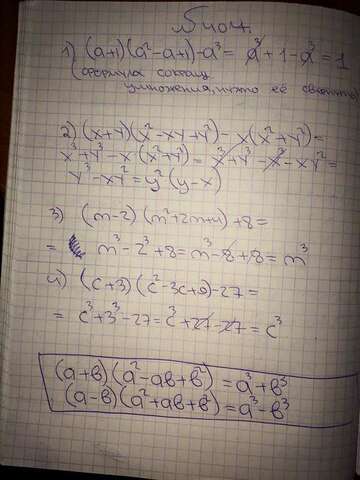 №404.
1) (a+1)(a²-a+1)-a³= a³+1-a³=1
(формула сокращ.
умножения, нужно её
2) (x+y)(x²-xy+y²)-x(x²+y²)=
x³+y³-x(x²+y²)=x³+y³-x³-xy²=
y³-xy²=y²(y-x)
3) (m-2)(m²+2m+4)+8=
= m³-2³+8=m³-8+8=m³
4) (c+3)(c²-3c+9)-27=
= c³+3³-27=c³+27-27=c³
(a+b)(a²-ab+b²)=a³+b³
(a-b)(a²+ab+b²)=a³-b³